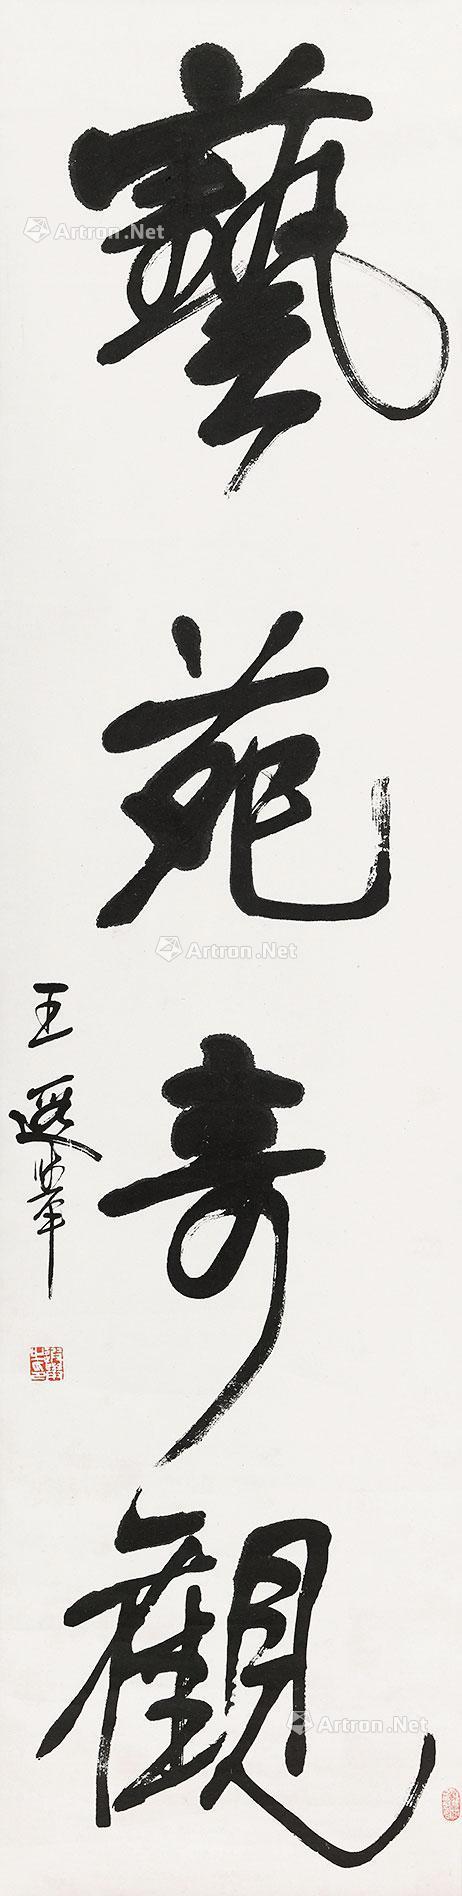 藝苑奇觀
王遐舉
Artron.Net
Artron.Net
Artron.Net